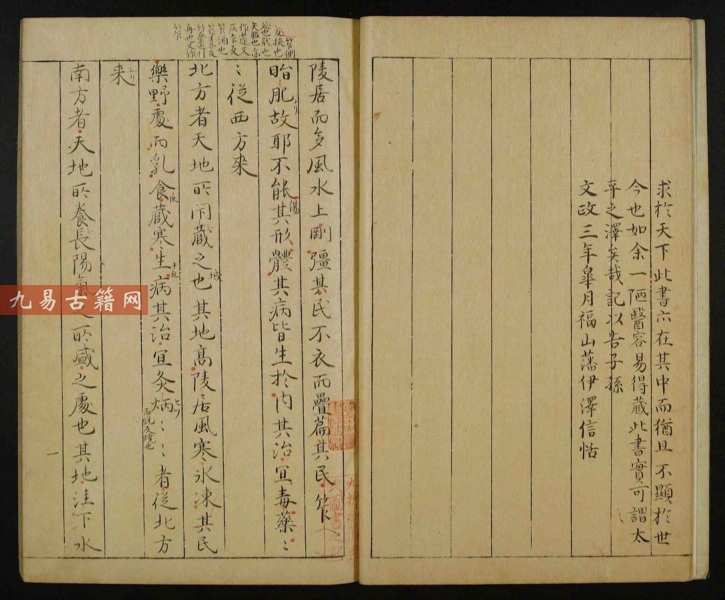 求於天下此書亦在其中而猶且不顯於世
今也如余一陋醫容易得藏此書實可謂太
平之澤矣哉記以告子孫
文政三年皐月福山藩伊澤信恬
陵居而多風水上剛彊其民不衣而疊篇其民
脂肥故耶不能其形體其病皆生於内其治宜毒藥〻
〻從西方来
北方者天地所閇蔵之也其地高陵居風寒氷凍其民
樂野處而乳食蔵寒生病其治宜灸焫〻〻者從北方
来
南方者天地所養長陽氣之所盛之處也其地洼下水
九易古籍网